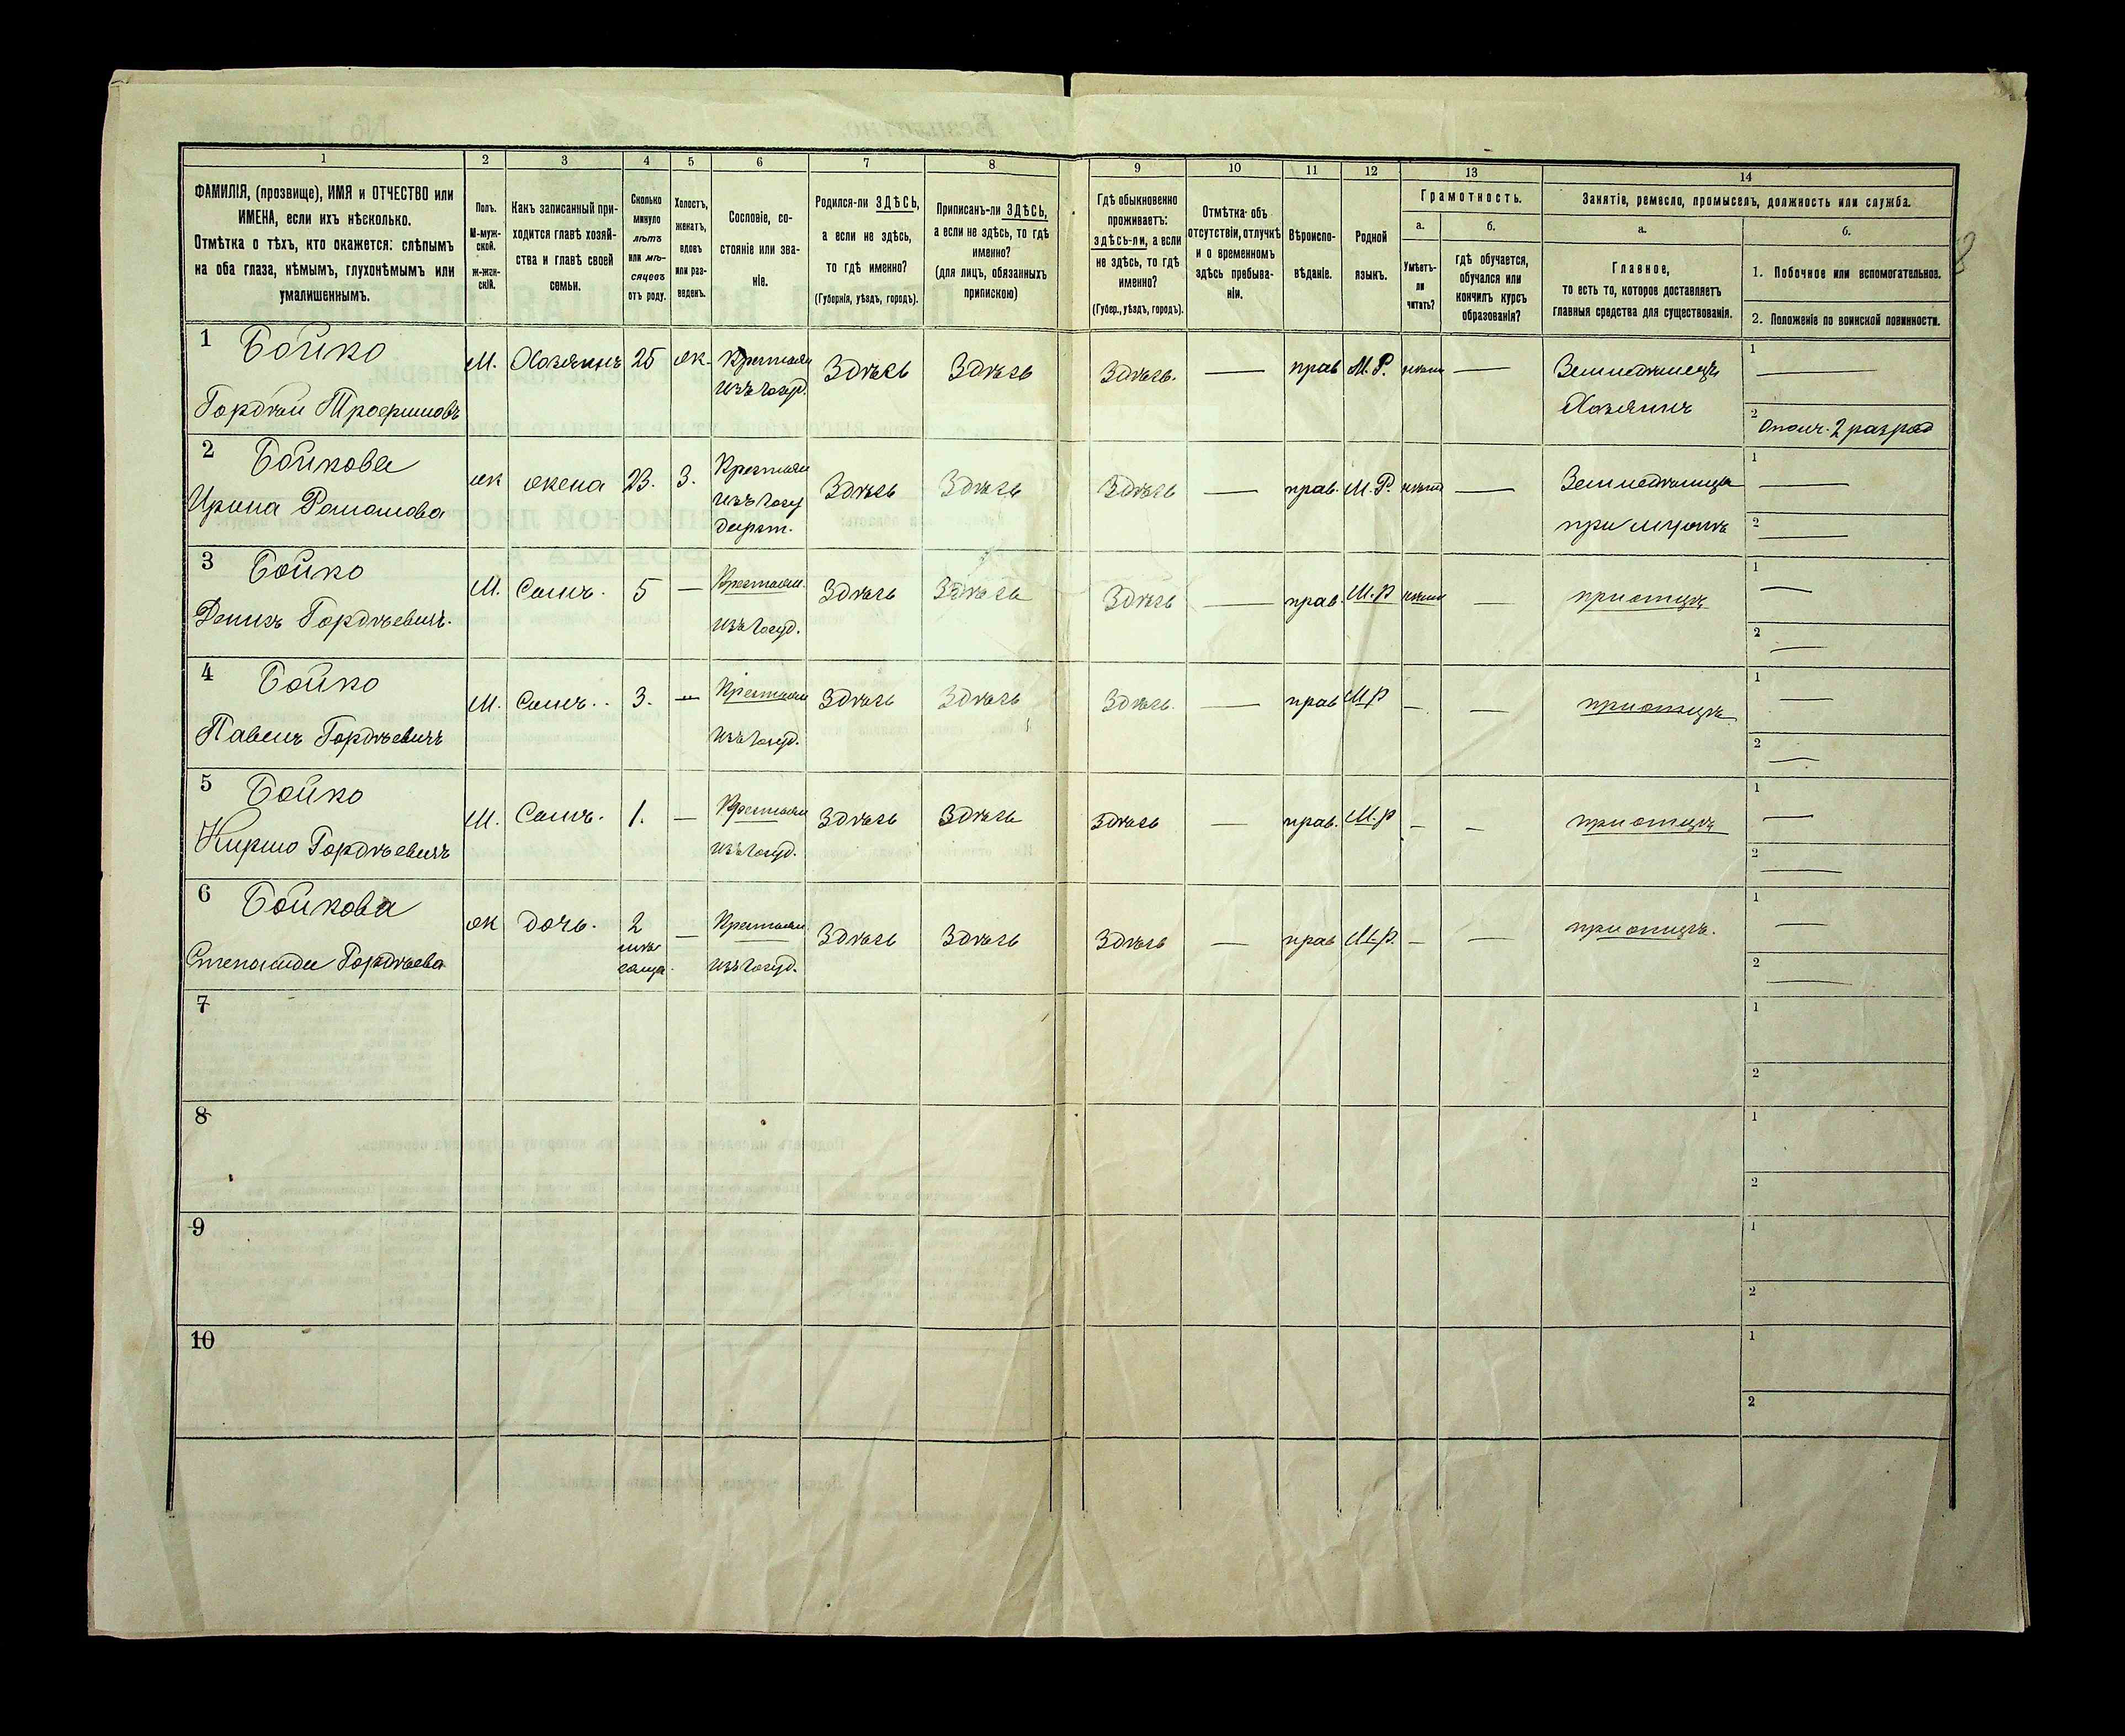 1 2 3 4 5 6 7 8 9 10 11 12 13 14
ФАМИЛІЯ, (прозвище), ИМЯ и ОТЧЕСТВО или
ИМЕНА, если ихъ нѣсколько.
Отмѣтка о тѣхъ, кто окажется: слѣпымъ
на оба глаза, нѣмымъ, глухонѣмымъ или
умалишеннымъ.
Полъ.
М-муж-
ской.
ж-жен-
скій.
Какъ записанный при-
ходится главѣ хозяй-
ства и главѣ своей
семьи.
Сколько
минуло
лѣтъ
или мѣ-
сяцевъ
отъ роду.
Холостъ,
женатъ,
вдовъ
или раз-
веденъ.
Сословіе, со-
стояніе или зва-
ніе.
Родился-ли ЗДѢСЬ,
а если не здѣсь,
то гдѣ именно?
(Губернія, уѣздъ, городъ).
Приписанъ-ли ЗДѢСЬ,
а если не здѣсь, то гдѣ
именно?
(для лицъ, обязанныхъ
припискою)
Гдѣ обыкновенно
проживаетъ:
здѣсь-ли, а если
не здѣсь, то гдѣ
именно?
(Губер., уѣздъ, городъ).
Отмѣтка объ
отсутствіи, отлучкѣ
и о временномъ
здѣсь пребыва-
ніи.
Вѣроиспо-
вѣданіе.
Родной
языкъ.
Грамотность.
а.
Умѣетъ-
ли
читать?
б.
гдѣ обучается,
обучался или
кончилъ курсъ
образованія?
Занятіе, ремесло, промыселъ, должность или служба.
а.
Главное,
то есть то, которое доставляетъ
главныя средства для существованія.
б.
1. Побочное или вспомогательное.
2. Положеніе по воинской повинности.
1 Бойко
Гордѣй Трофимовъ
М. Хозяинъ 25 ж. Крестьян
изъ госуд.
Здѣсь Здѣсь Здѣсь. — прав М.Р. нѣтъ —
Земледѣлецъ
Хозяинъ
1 —
2 Ополч. 2 разряд
2 Бойкова
Ирина Романова
ж жена 23. З. Крестьян
изъ госу
дарст.
Здѣсь Здѣсь Здѣсь — прав. М.Р. нѣтъ —
Земледѣлица
при мужѣ
1 —
2 —
3 Бойко
Денисъ Гордѣевичъ.
М. Сынъ. 5 — Крестьян.
изъ госуд.
Здѣсь Здѣсь Здѣсь — прав. М.р нѣтъ —
при отцѣ
1 —
2 —
4 Бойко
Павелъ Гордѣевичъ
М. Сынъ. 3. — Крестьян
изъ госуд.
Здѣсь Здѣсь Здѣсь. — прав М.р — —
при отцѣ
1 —
2 —
5 Бойко
Кирило Гордѣевичъ
М. Сынъ. 1. — Крестьян
изъ госуд.
Здѣсь Здѣсь Здѣсь — прав. М.р — —
при отцѣ
1 —
2 —
6 Бойкова
Степанида Гордѣева
ж дочь. 2
мѣ
сяца.
— Крестьян
изъ госуд.
Здѣсь Здѣсь Здѣсь — прав М.р. — —
при отцѣ.
1 —
2 —
7
1
2
8
1
2
9
1
2
10
1
2